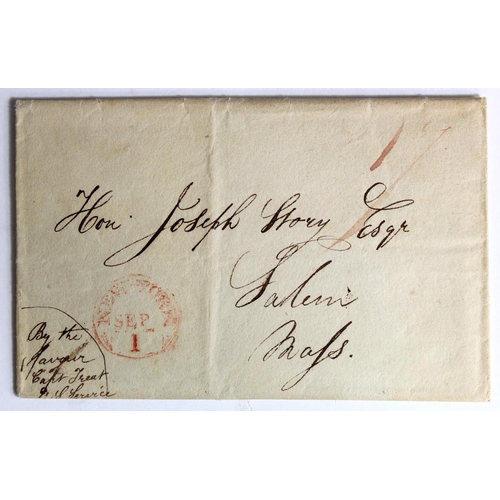 Hon. Joseph Story Esqr
Salem
Mass.
NEW-YORK
SEP
1
By the
favour
Capt Treat
U.S Service